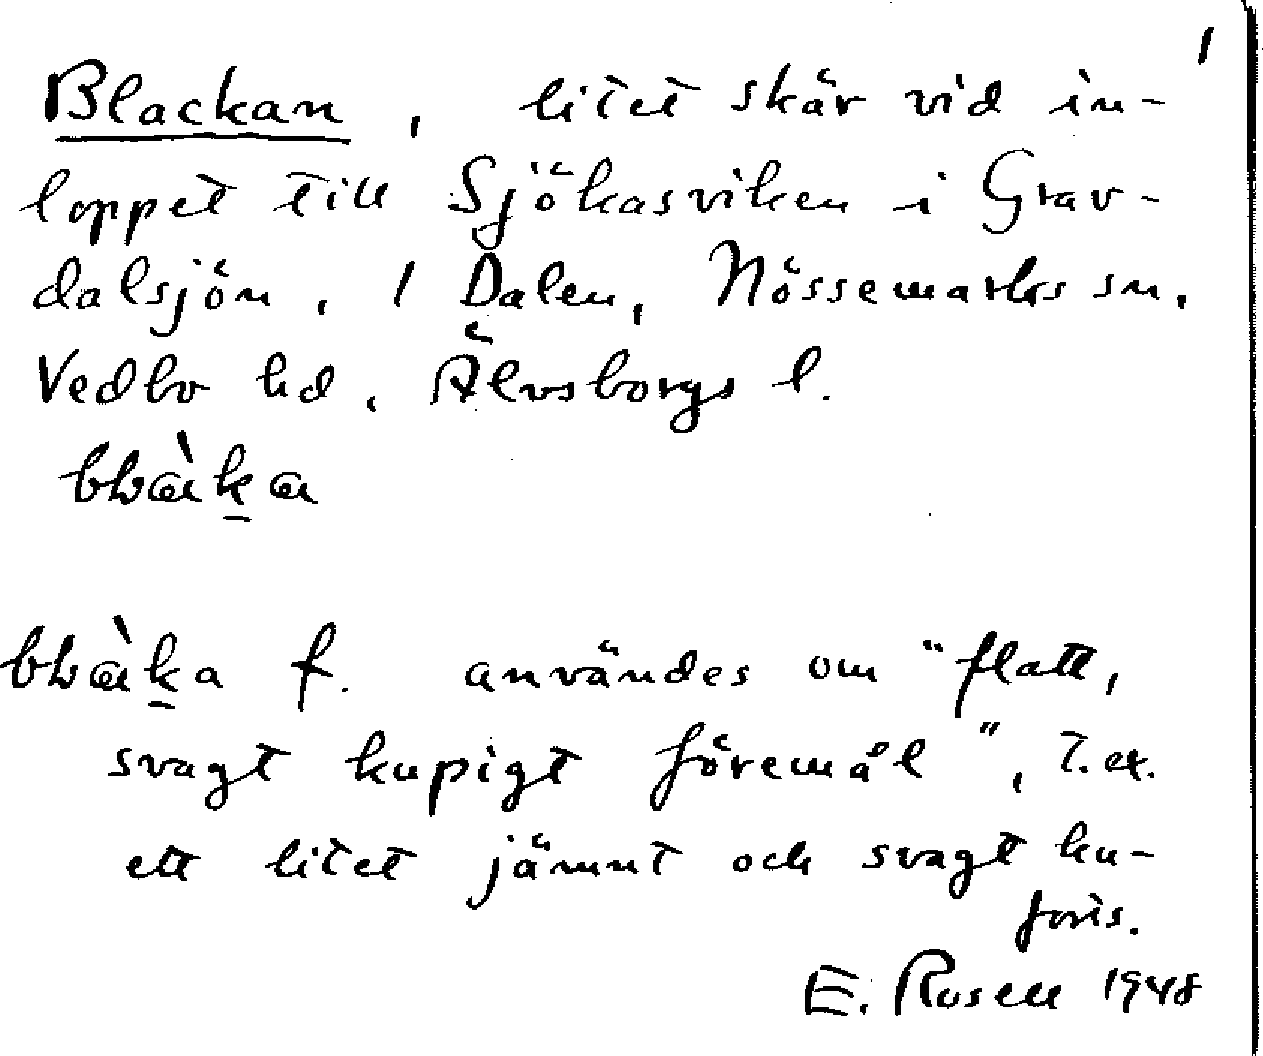 1
Blackan, litet skär vid in-
loppet till Sjökasviken i Grav-
dalsjön, / Dalen, Nössemarks sn,
Vedbo hd, Älvsborgs l.
blàka

blàka f. användes om "flatt,
svagt kupigt föremål", t.ex.
ett litet jämnt och svagt ku-
forts.
E. Rosell 1948